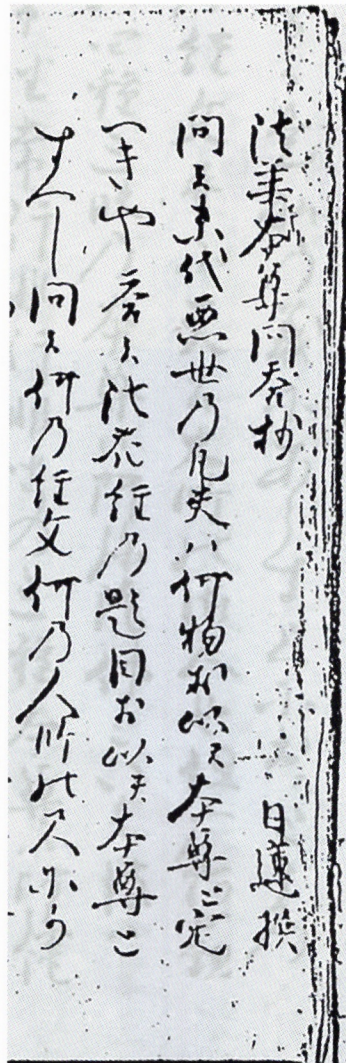 法華本尊問答抄　日蓮撰
問云末代悪世乃凡夫ハ何物お以天本尊と定
へきや答云法花経乃題目お以天本尊と
すへし問云何乃経文何乃人師能尺尓か